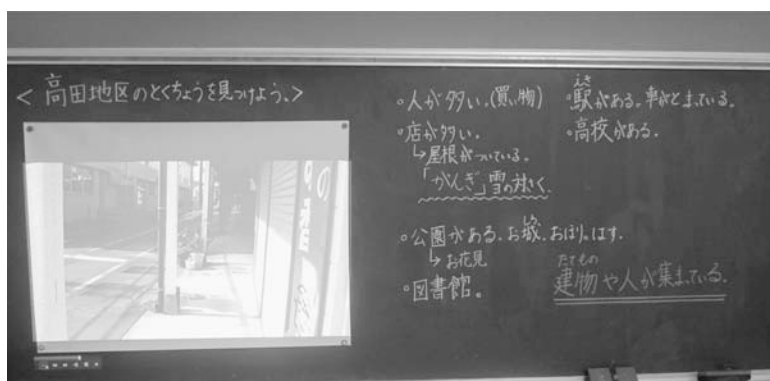 <高田地区のとくちょうを見つけよう。>
。人が多い。(買い物)
。店が多い。
↳屋根がついている。
「がんぎ」雪の対さく。
。公園がある。お城。おほり。はす。
↳お花見
。図書館。
えき
。駅がある。車がとまっている。
。高校がある。
たてもの
建物や人が集まっている。